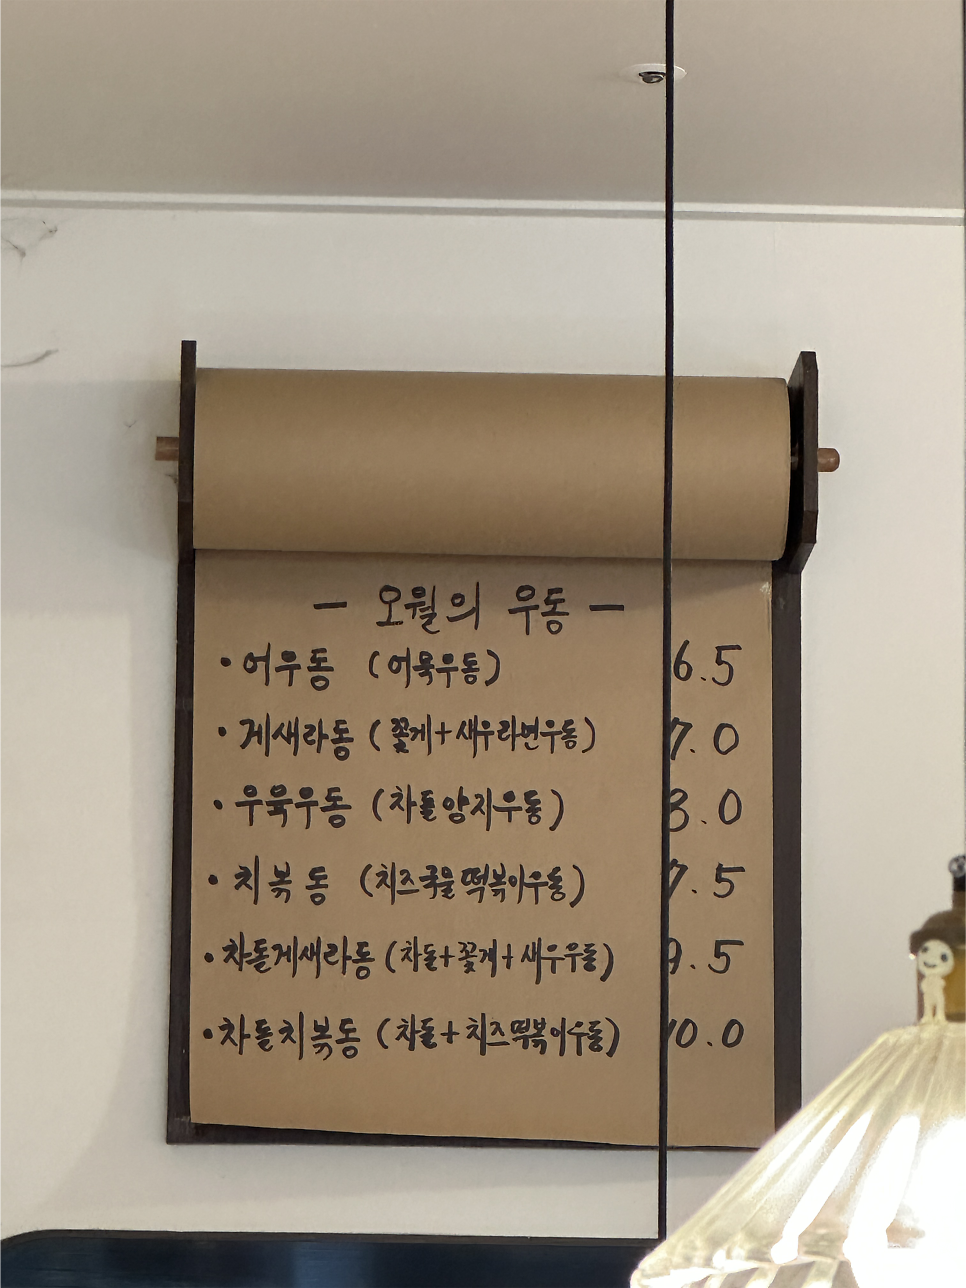 - 오월의 우동 -
• 어우동 (어묵우동) 6.5
• 게새라동 (꽃게+새우라면우동) 7.0
• 우육우동 (차돌양지우동) 8.0
• 치볶동 (치즈국물떡볶이우동) 7.5
• 차돌게새라동 (차돌+꽃게+새우우동) 9.5
• 차돌치볶동 (차돌+치즈떡볶이우동) 10.0